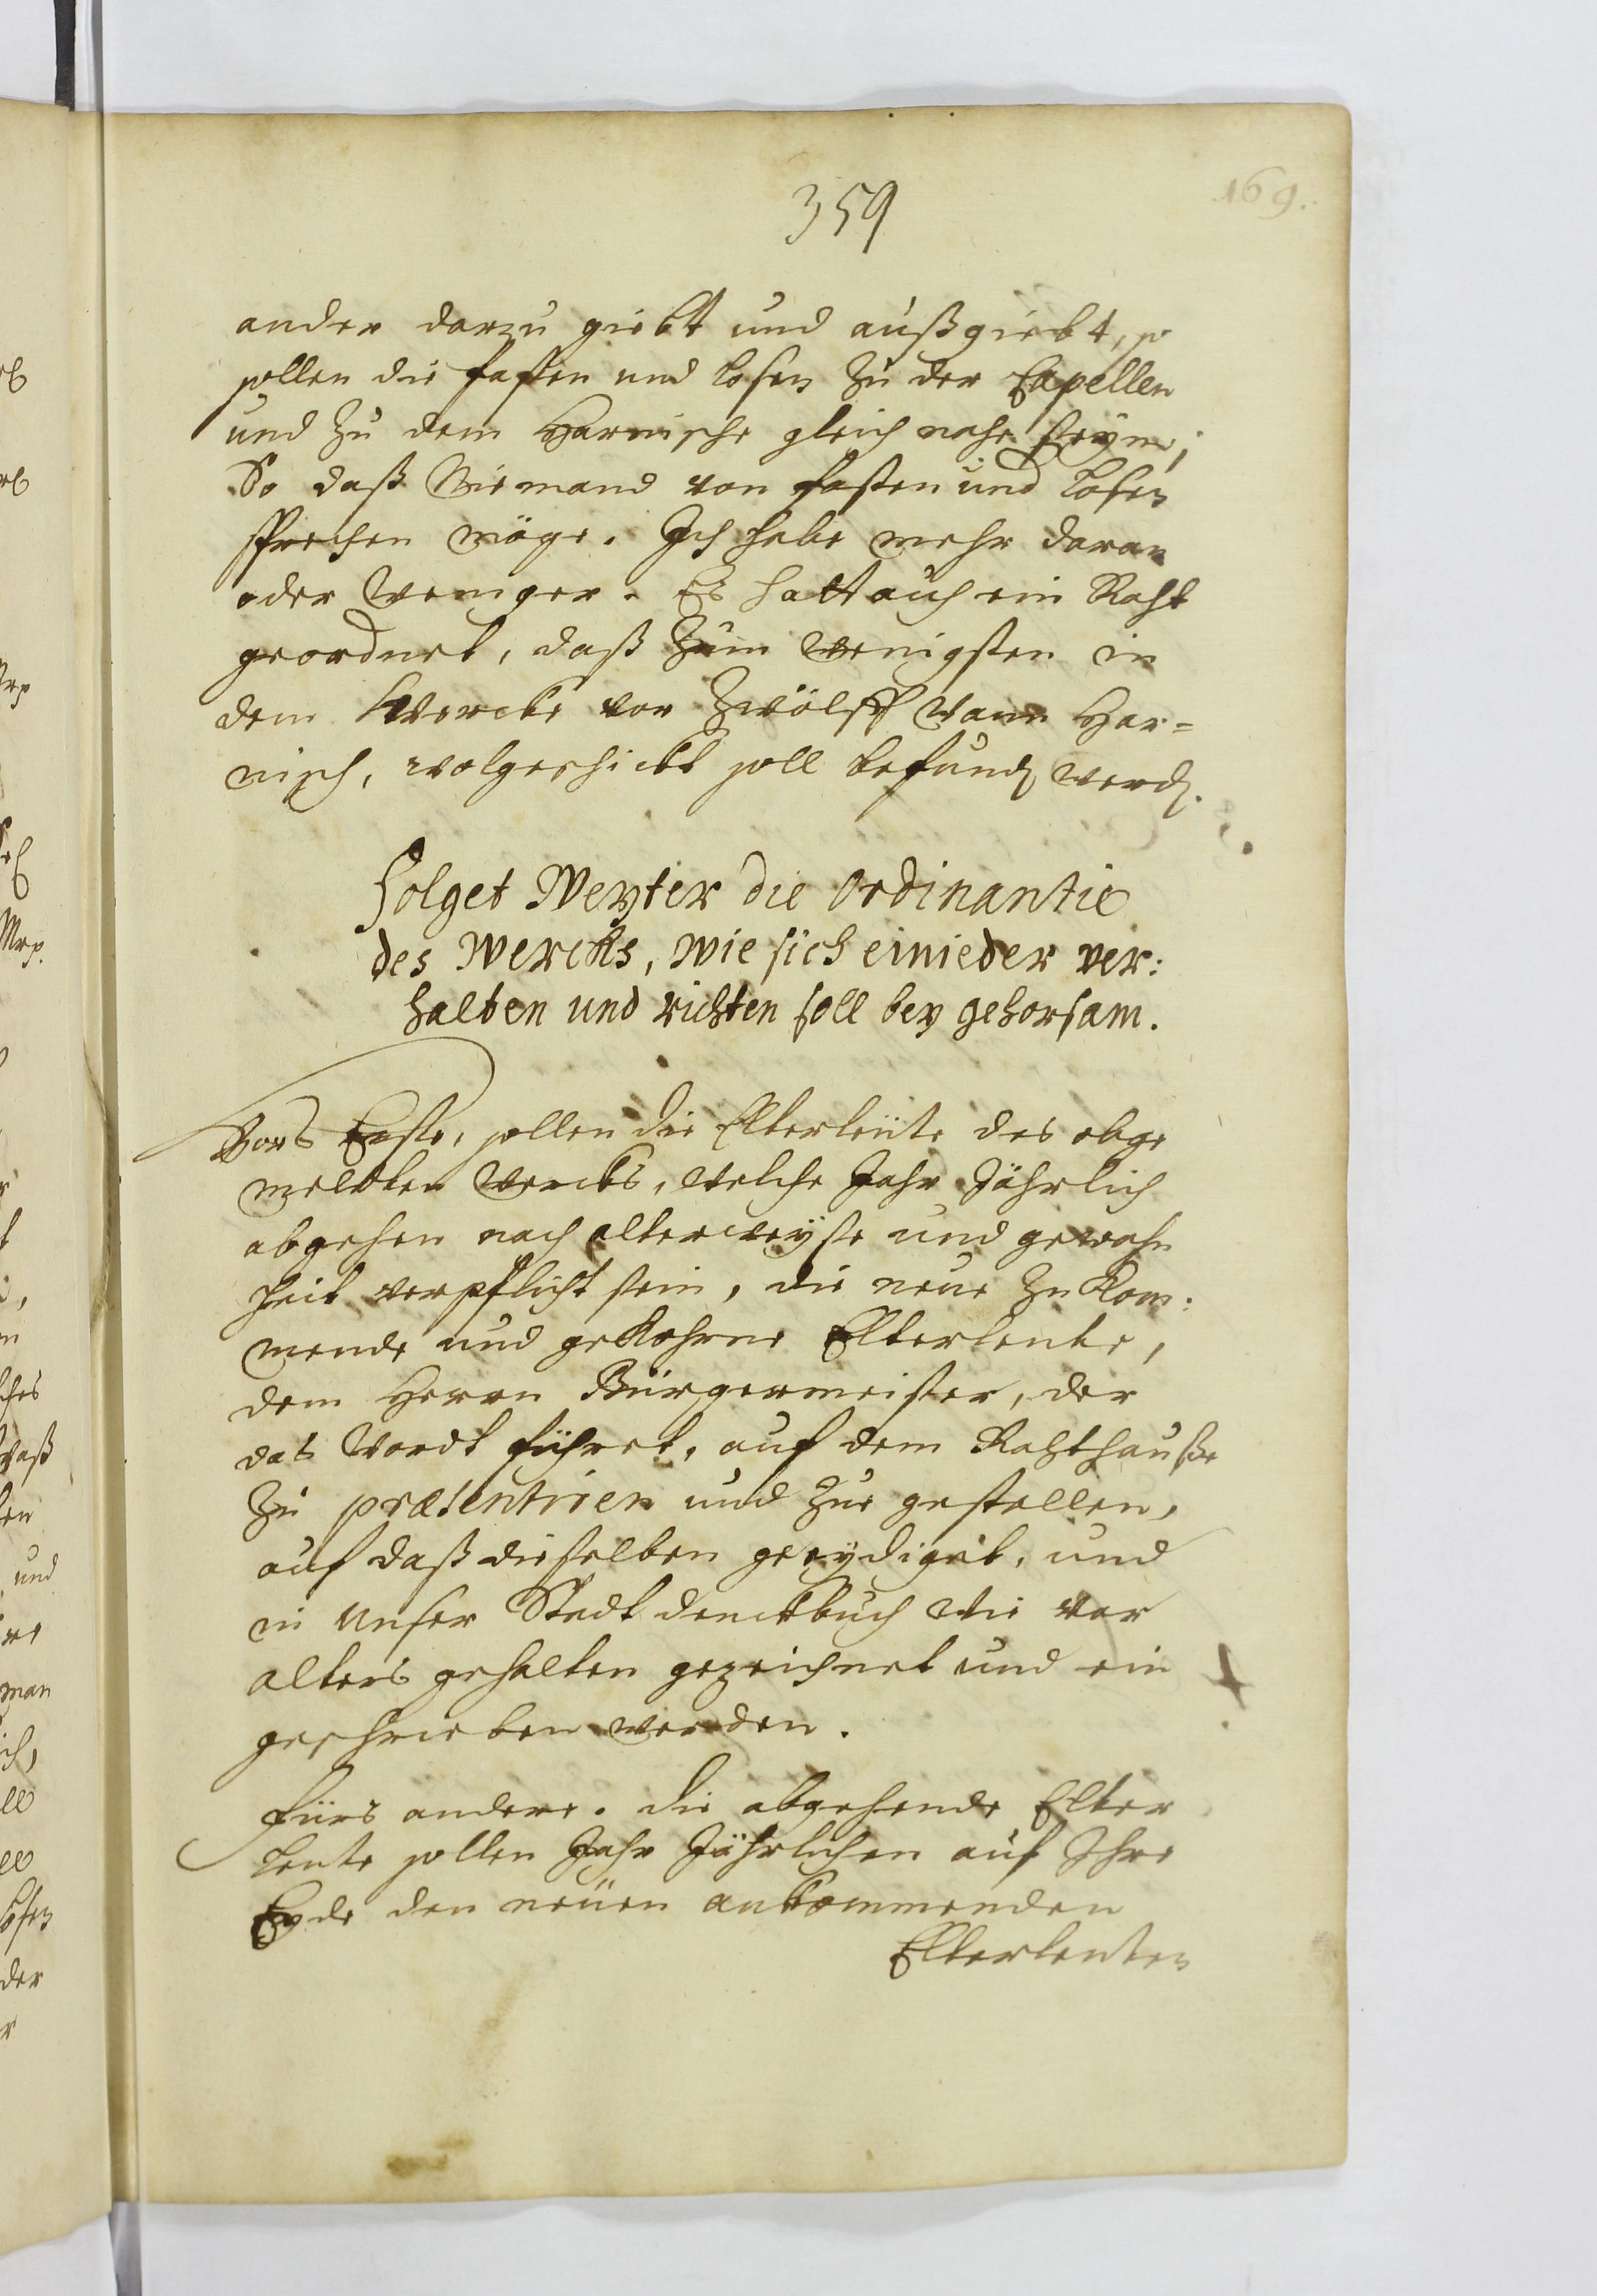 359
169.
ander darzu giebtt und außgiebt, so
sollen die fasten und losen zu der Capellen
und zu dem Harnische gleich nahe seyn;
So daß Niemand von fasten und losen
sprechen möge. Ich habe mehr daran
oder weniger. Es hatt auch ein Raht
geordnet, daß zum wenigsten in
dem Wercke vor Zwölff Mann Har=
nisch, wolgeschickt soll befund werd.
Folget Weyter die Ordinantie
des Wercks, wie sich einieder ver:
halten und richten soll bey gehorsam.
Vors Erste, sollen die Elterleüte des obge
meldten Wercks, welche Jahr Jährlich
abgehen nach alter weyse und gewohn
heit verpflicht sein, die neue zu Kom:
mende und geKohrne Elterleute,
dem Herrn Bürgermeister, der
das Wordt führet, auf dem Rahthauße
zu præsentiren und zur gestellen,
auf daß dieselben geeydiget, und
in unser Stadt denckbuch wie vor
alters gehalten gezeichnet und ein
geschrieben werden.
fürs andere. die abgehende Elter
leute sollen Jahr Jährlichen auf Ihre
Eyde den neüen ankommenden
Elterleuten